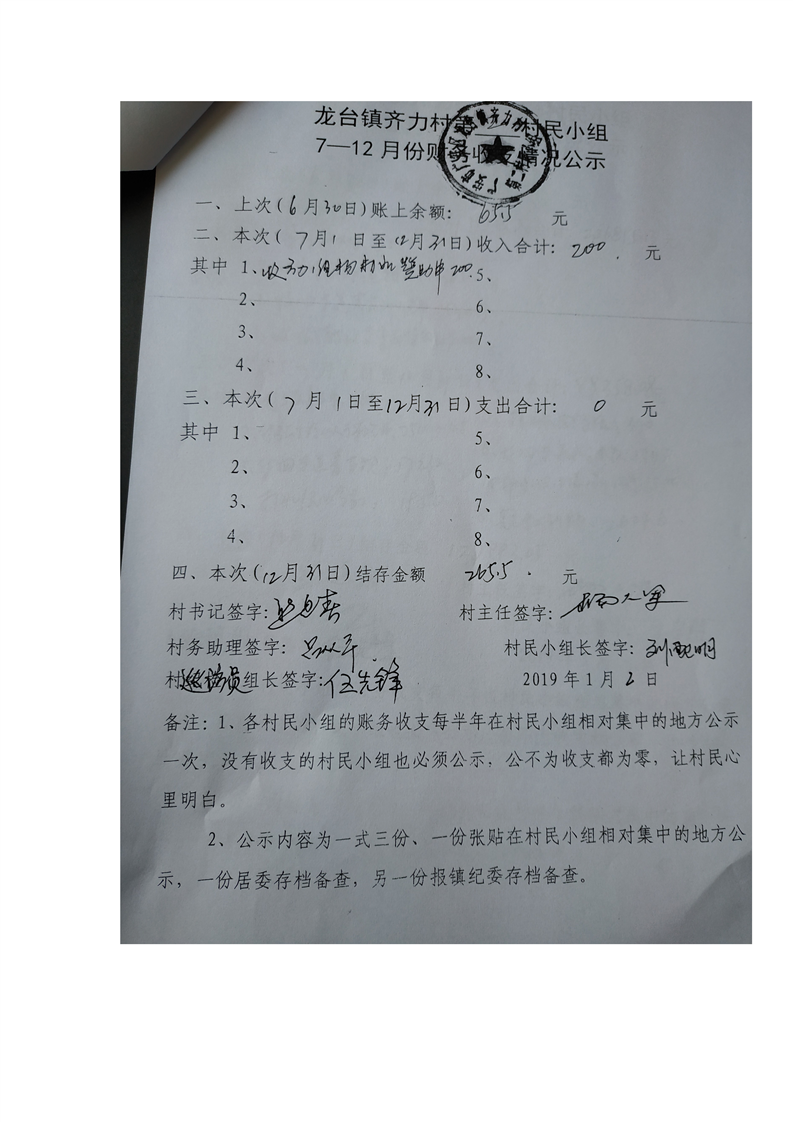 龙台镇齐力村 村民小组
7—12月份财 收支情况公示
一、上次(6月30日)账上余额: 65.5 元
二、本次(7月1日至12月31日)收入合计: 200. 元
其中 1、收 组 赞助 200. 5、
2、 6、
3、 7、
4、 8、
三、本次(7月1日至12月31日)支出合计: 0 元
其中 1、 5、
2、 6、
3、 7、
4、 8、
四、本次(12月31日)结存金额 265.5. 元
村书记签字: 村主任签字:
村务助理签字: 村民小组长签字:
村 组长签字:伍先锋 2019年1月2日
备注:1、各村民小组的账务收支每半年在村民小组相对集中的地方公示
一次,没有收支的村民小组也必须公示,公不为收支都为零,让村民心
里明白。
2、公示内容为一式三份、一份张贴在村民小组相对集中的地方公
示,一份居委存档备查,另一份报镇纪委存档备查。